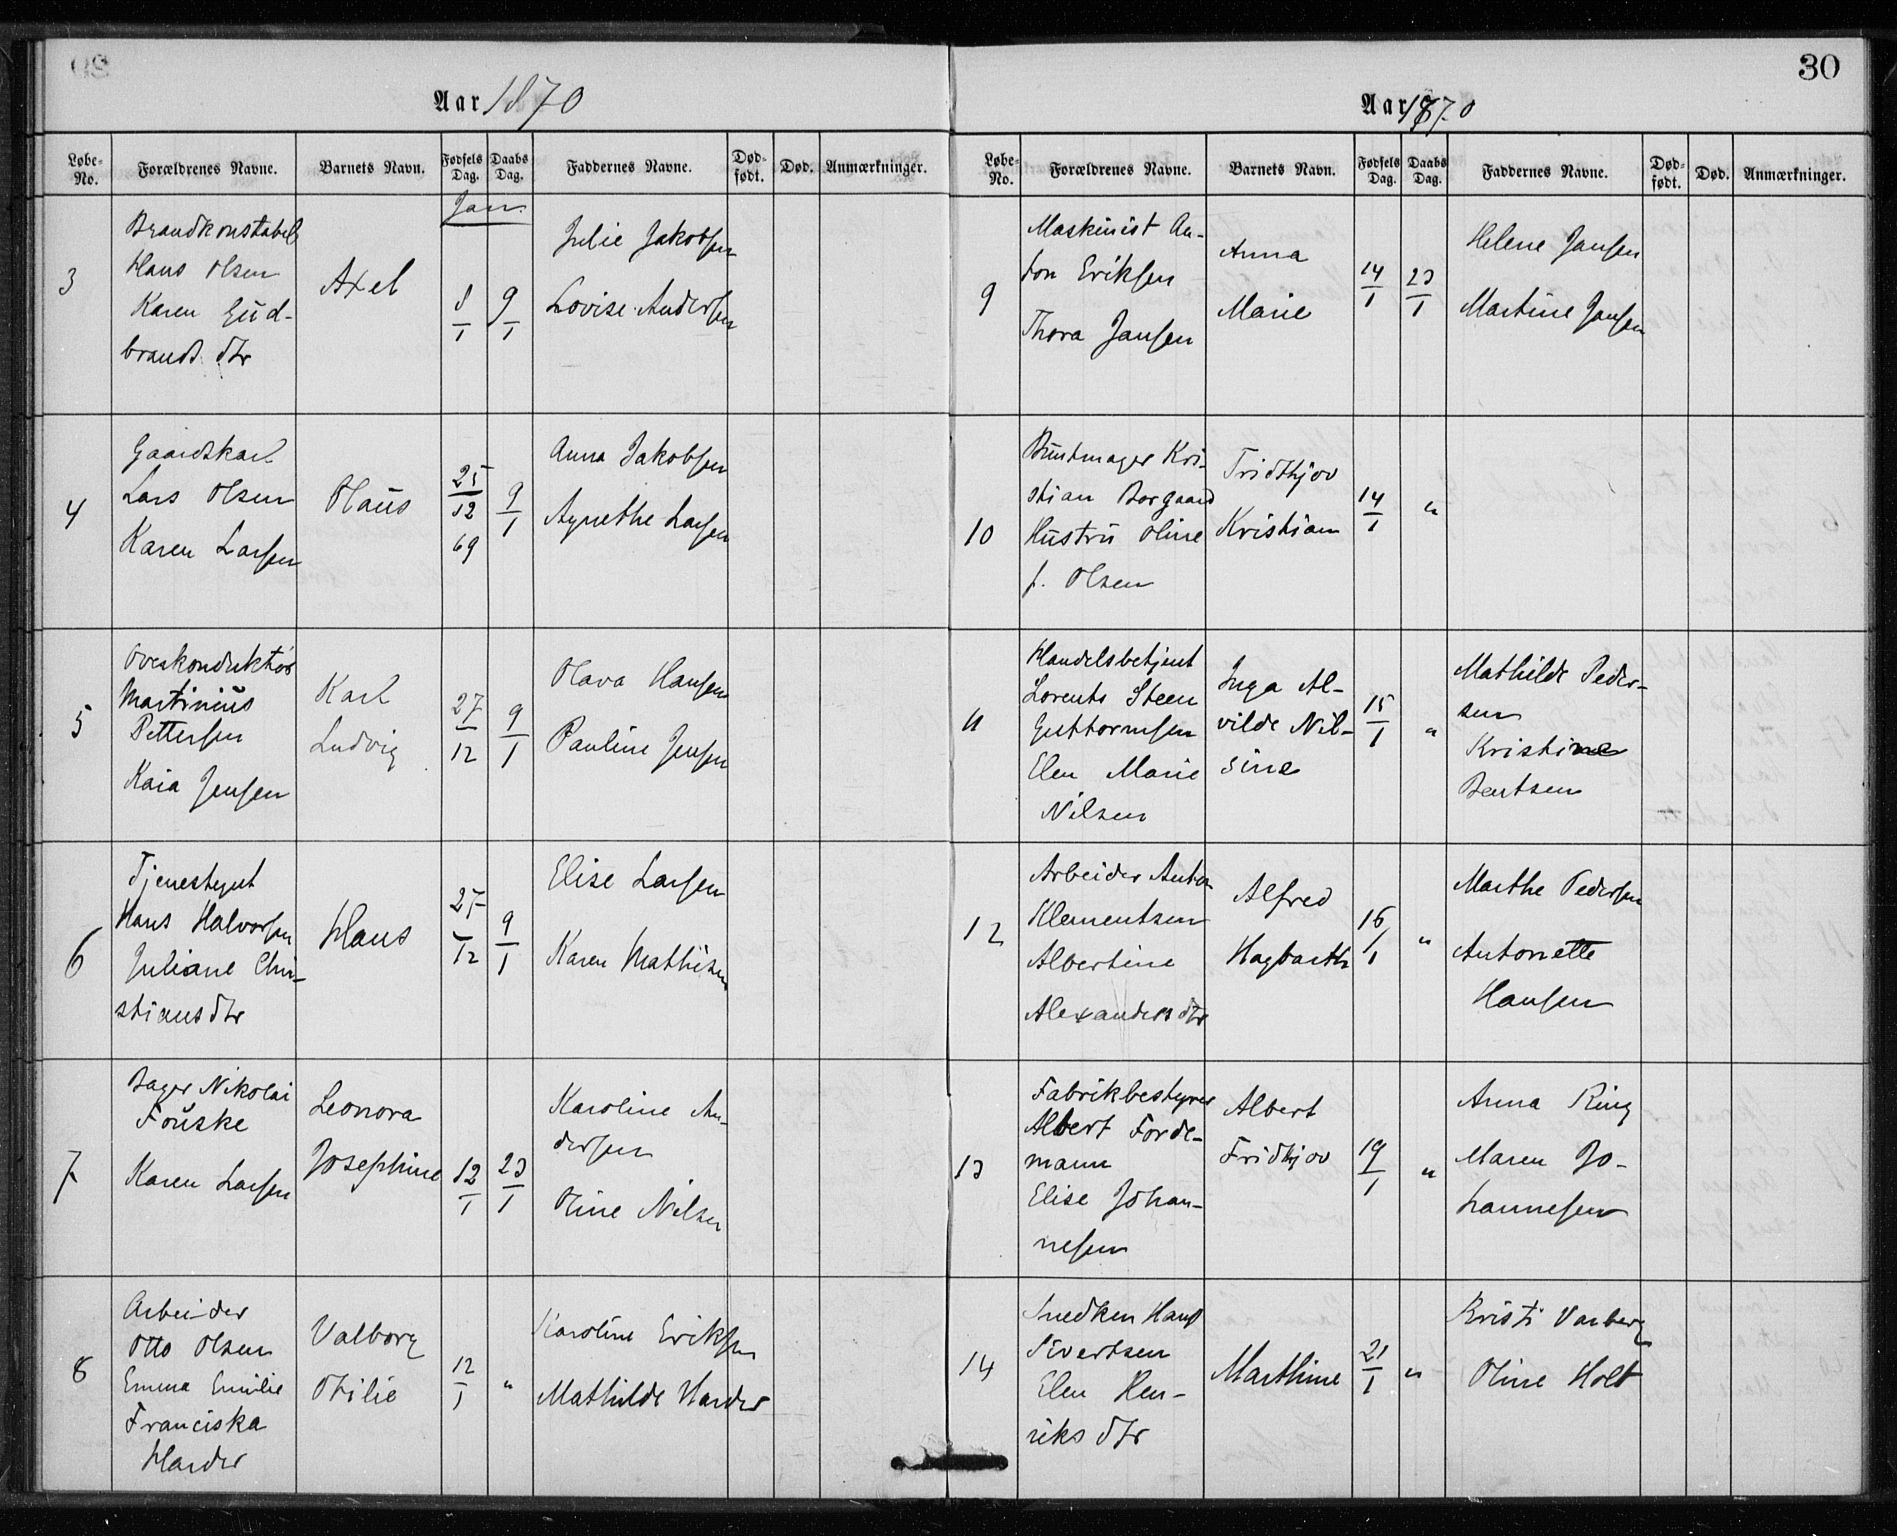 Aar 1870
Løbe-No. Forældrenes Navne. Barnets Navn. Fødsels Dag. Daabs Dag. Faddernes Navne. Død-født. Død. Anmærkninger.
Jan.
3
Brandkonstabel
Hans Olsen
Karen Gud-
brands dtr
Axel
8/1
9/1
Julie Jakobsen
Lovise Andersen
4
Gaardskarl
Lars Olsen
Karen Larsen
Olaus
25/12
69
9/1
Anna Jakobsen
Agnethe Larsen
5
Overkonduktør
Martinius
Pettersen
Kaia Jensen
Karl
Ludvig
27/12
9/1
Olava Hansen
Pauline Jensen
6
Tjenestegut
Hans Halvorsen
Juliane Chri-
stiansdtr
Hans
27/12
9/1
Elise Larsen
Karen Mathisen
7
Bager Nikolai
Fouske
Karen Larsen
Leonora
Josephine
12/1
23/1
Karoline An-
dersen
Oline Nilsen
8
Arbeider
Otto Olsen
Emma Emilie
Franciska
Harder
Valborg
Otilie
12/1
"
Karoline Eriksen
Mathilde Harder
30
Aar 1870
Løbe-No. Forældrenes Navne. Barnets Navn. Fødsels Dag. Daabs Dag. Faddernes Navne. Død-født. Død. Anmærkninger.
9
Maskinist An-
ton Eriksen
Thora Jansen
Anna
Marie
14/1
23/1
Helene Jansen
Martine Jansen
10
Buntmager Kri-
stian Borgaard
Hustru Oline
f. Olsen
Fridthjov
Kristian
14/1
"
11
Handelsbetjent
Lorents Steen
Guttormsen
Elen Marie
Nilsen
Inga Al-
vilde Nil-
sine
15/1
"
Mathilde Peder-
sen
Kristine
Bentsen
12
Arbeider Anton
Klementsen
Albertine
Alexanders dtr
Alfred
Hagbarth
16/1
"
Marthe Pedersen
Antonette
Hansen
13
Fabrikbestyrer
Albert Forde-
mann
Elise Johan-
nesen
Albert
Fridthjov
19/1
"
Anna Ring
Maren Jo-
hannesen
14
Snedker Hans
Sivertsen
Elen Hen-
riks dtr
Marthine
21/1
"
Kristi Varberg
Oline Holt